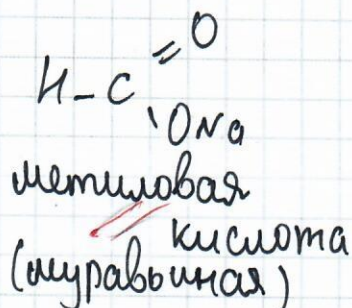 O
H-C
ONa
метиловая
кислота
(муравьиная)